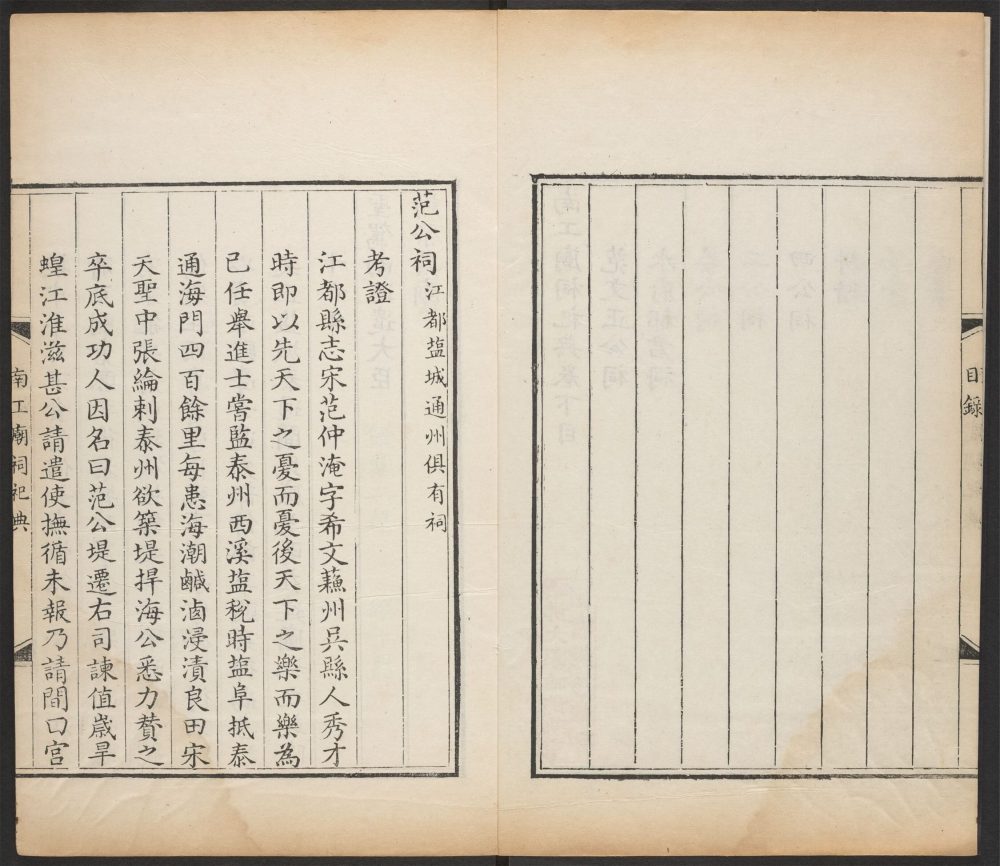 目錄
范公祠江都塩城通州俱有祠
考證
江都縣志宋范仲淹字希文蘓州吳縣人秀才
時即以先天下之憂而憂後天下之樂而樂為
已任舉進士嘗監泰州西溪塩稅時塩阜抵泰
通海門四百餘里每患海潮鹹滷浸漬良田宋
天聖中張綸剌泰州欲築堤捍海公悉力贊之
卒底成功人因名曰范公堤遷右司諫值歲旱
蝗江淮滋甚公請遣使撫循未報乃請間口宮
南工廟祠祀典